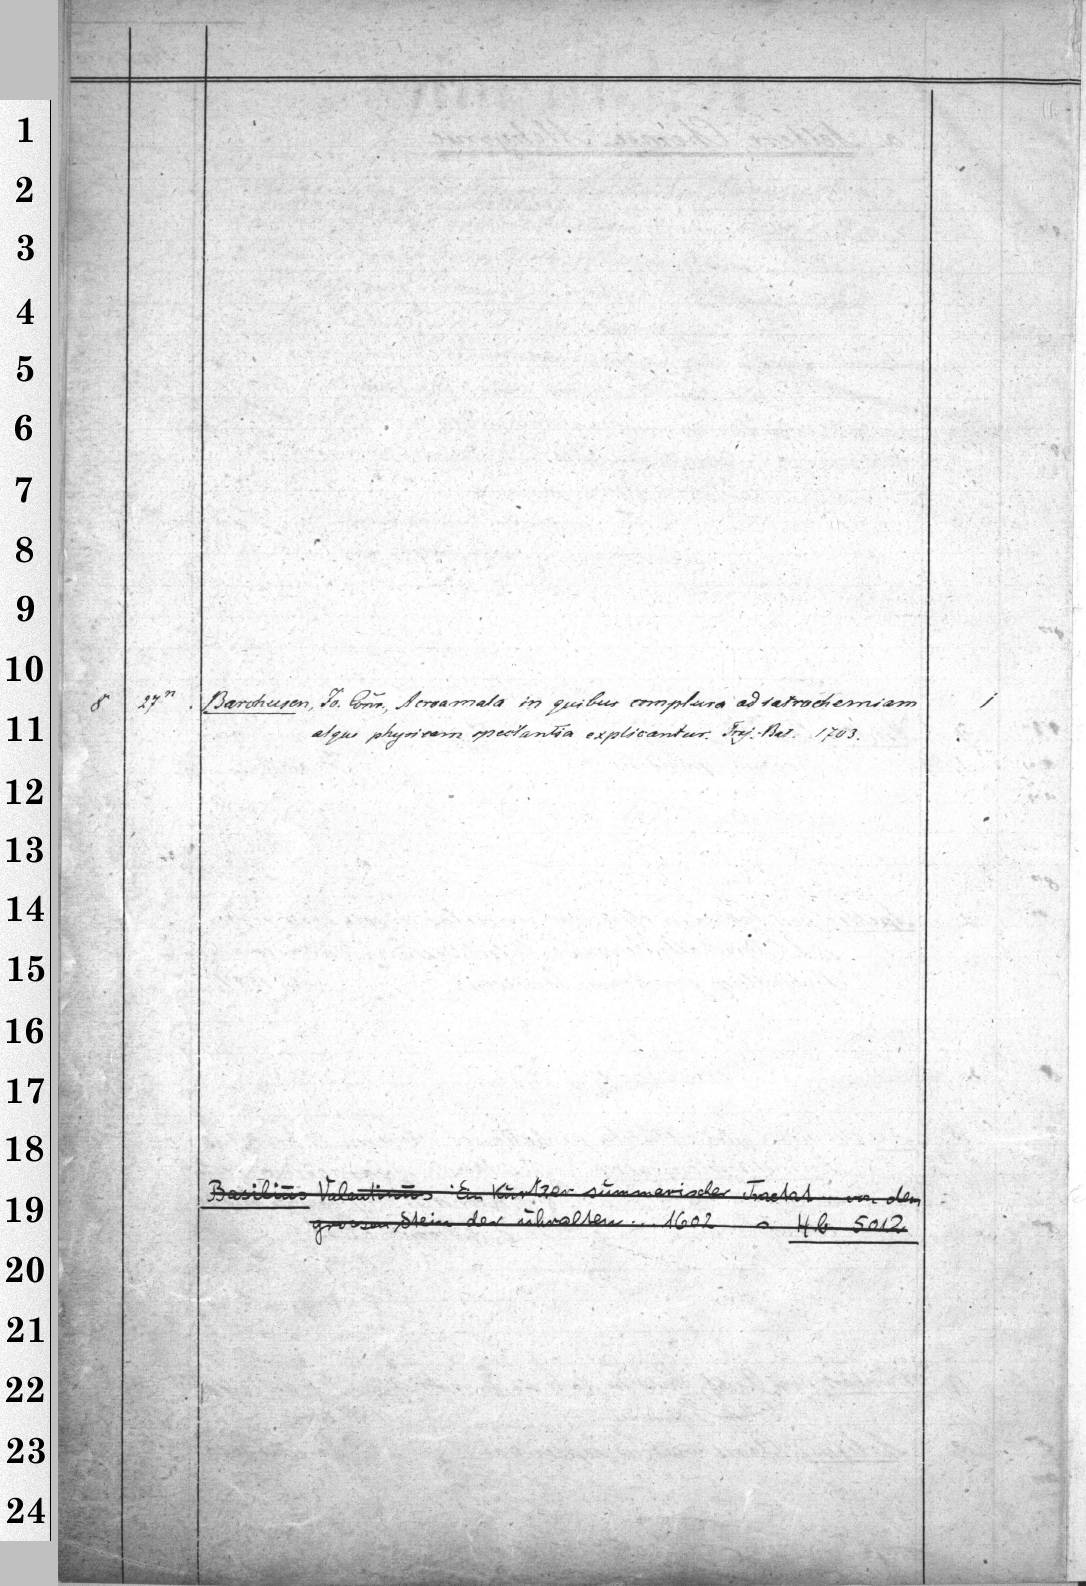 1
2
3
4
5
6
7
8
9
10
8 27ⁿ. Barchusen, Jo. Conr., Acroamata in quibus complura ad iatrochemiam 1
11
atque physicam spectantia explicantur. Traj.-Bat. 1703.
12
13
14
15
16
17
18
Basilius Valentinus Ein Kurtzer summarischer Tractat von dem
19
grossen Stein der uhralten ... 1602 Hb 5012
20
21
22
23
24